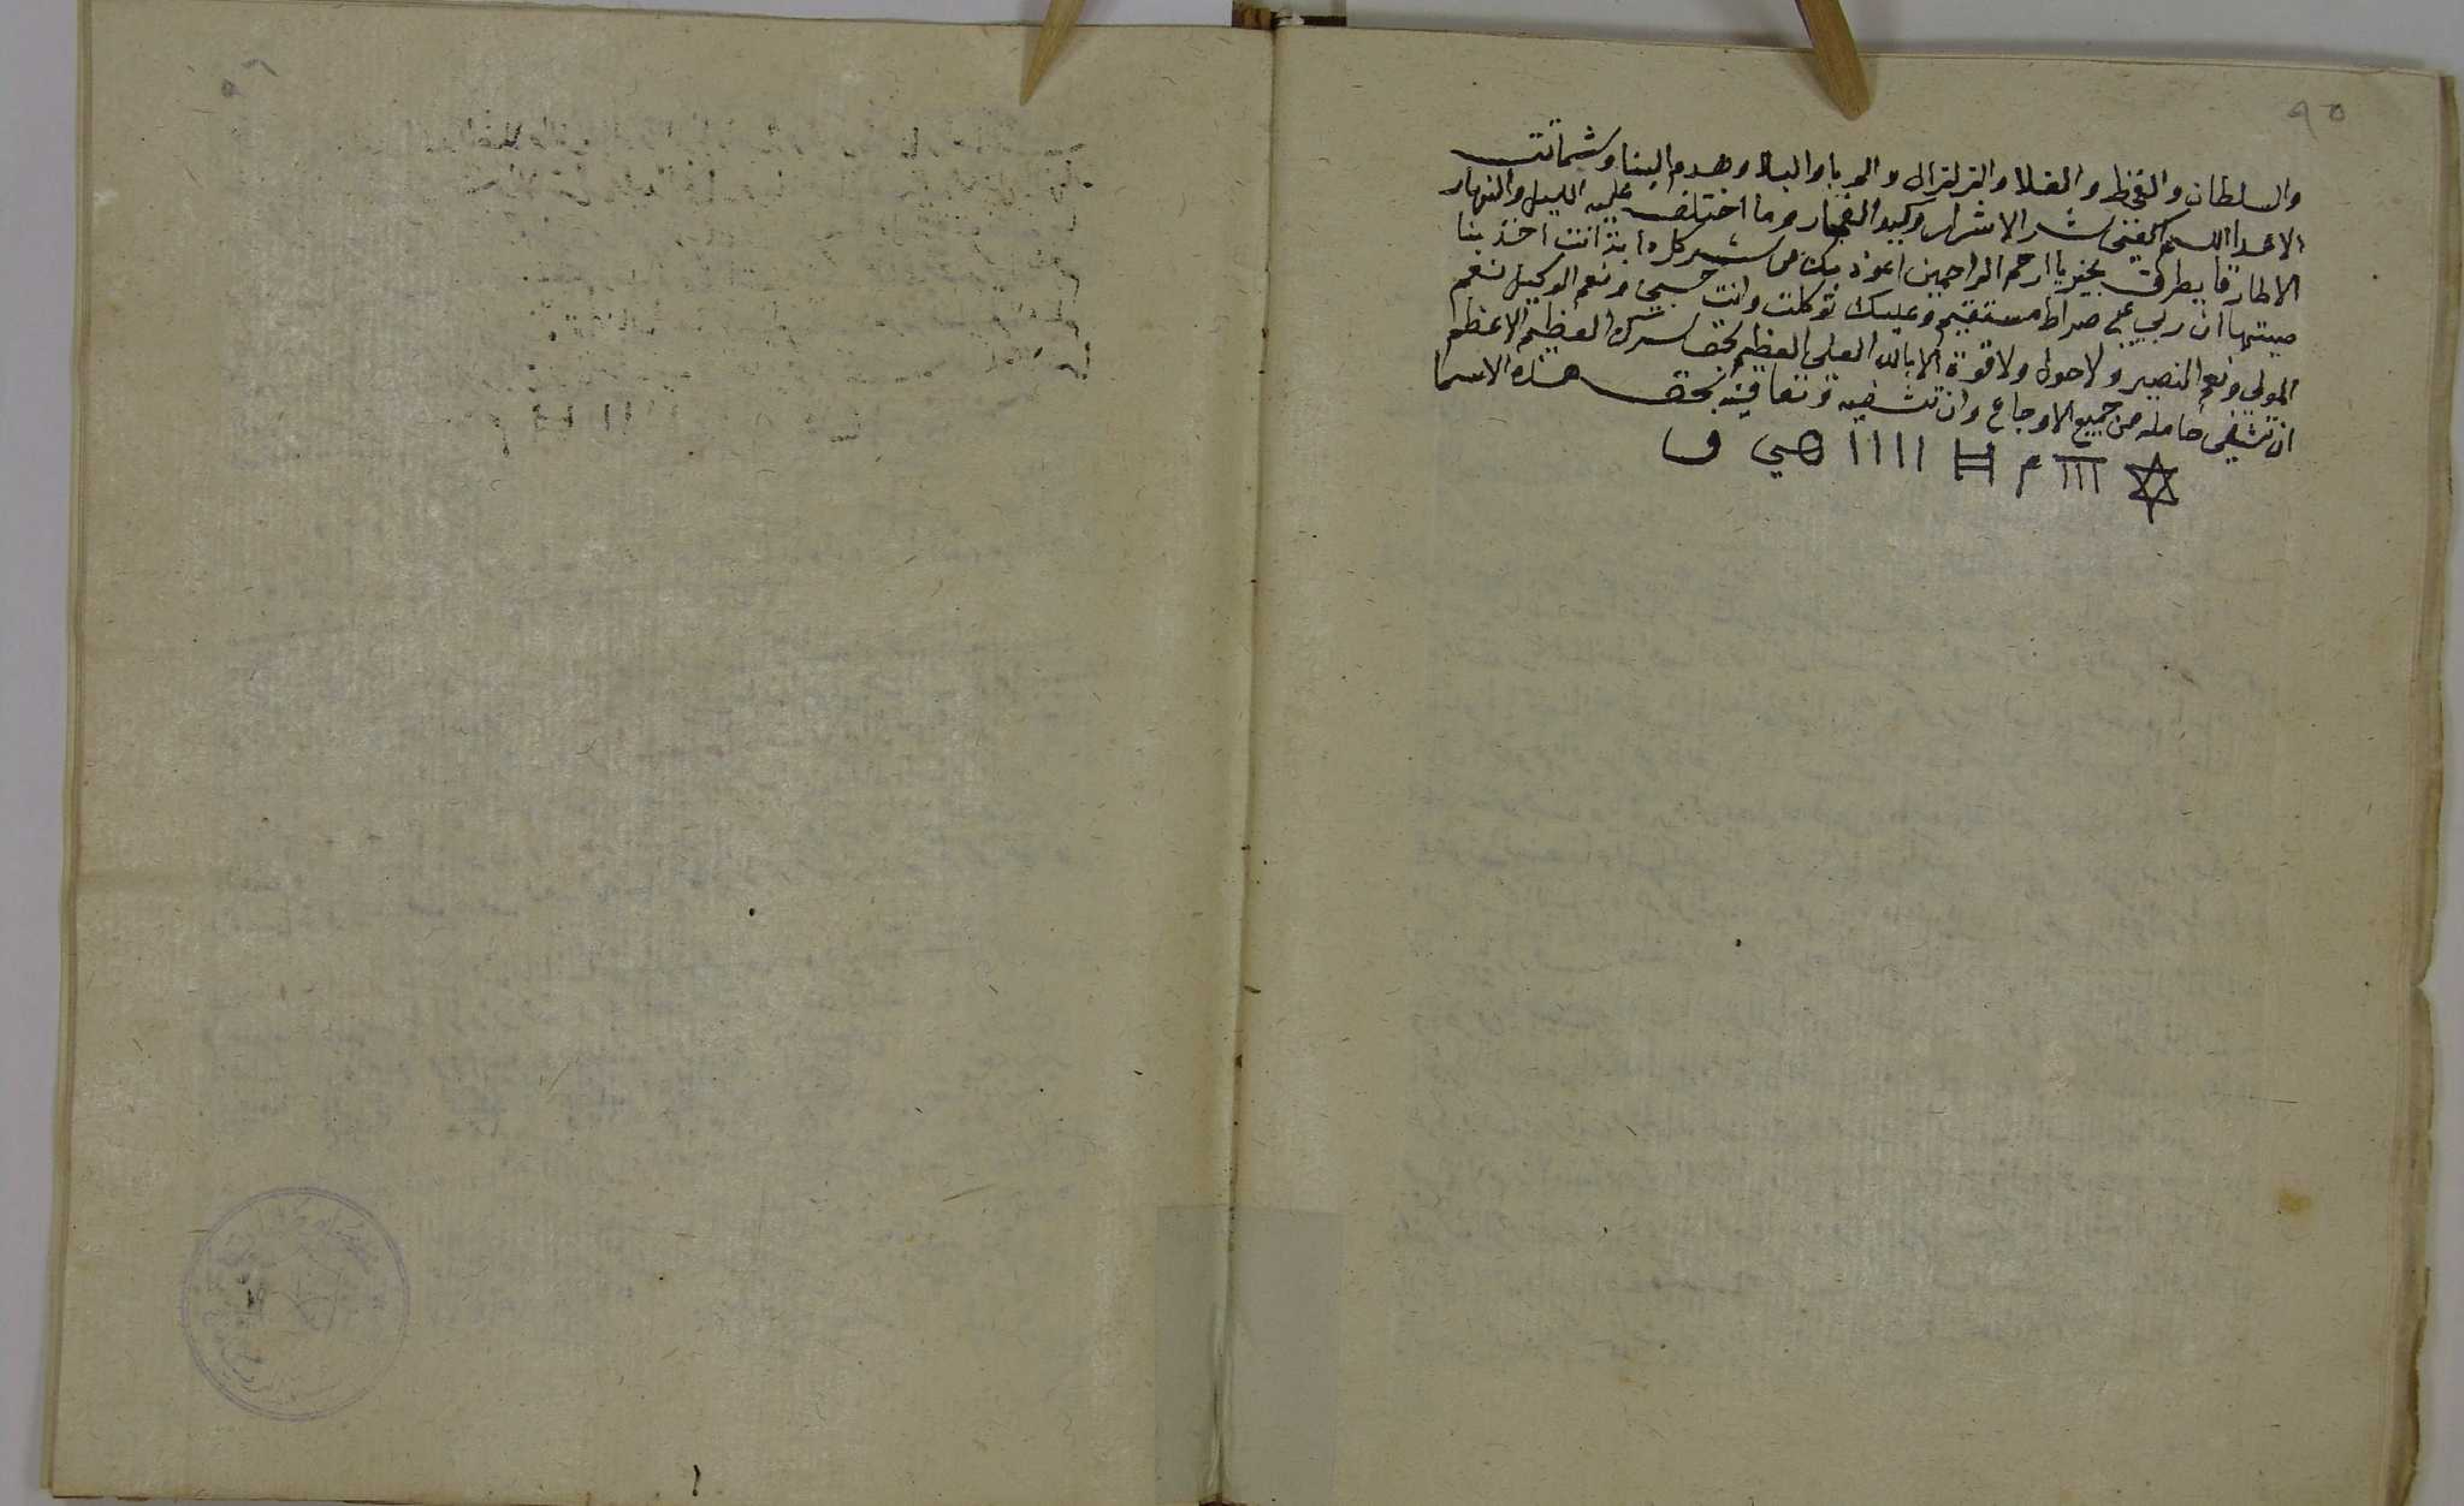 ٩٥
والسلطان والقحط والغلا والزلزال والوبا والبلا وهدم البنا وشماتت
الاعدا اللهم اكفنى شر الاشرار وكيد الفجار وما اختلف عليه الليل والنهار
الا طارقا يطرق بخير يا ارحم الراحمين اعوذ بك من شر كل دابة انت اخذ بنا
صيتها ان ربي على صراط مستقيم وعليك توكلت وانت حسبي ونعم الوكيل نعم
المولى ونعم النصير ولا حول ولا قوة الا بالله العلى العظيم بحق سرك العظيم الاعظم
ان تشفى حامله من جميع الاوجاع وان تشفيه وتعافيه بحق هذه الاسما
✡ ااا م # اااا هي و